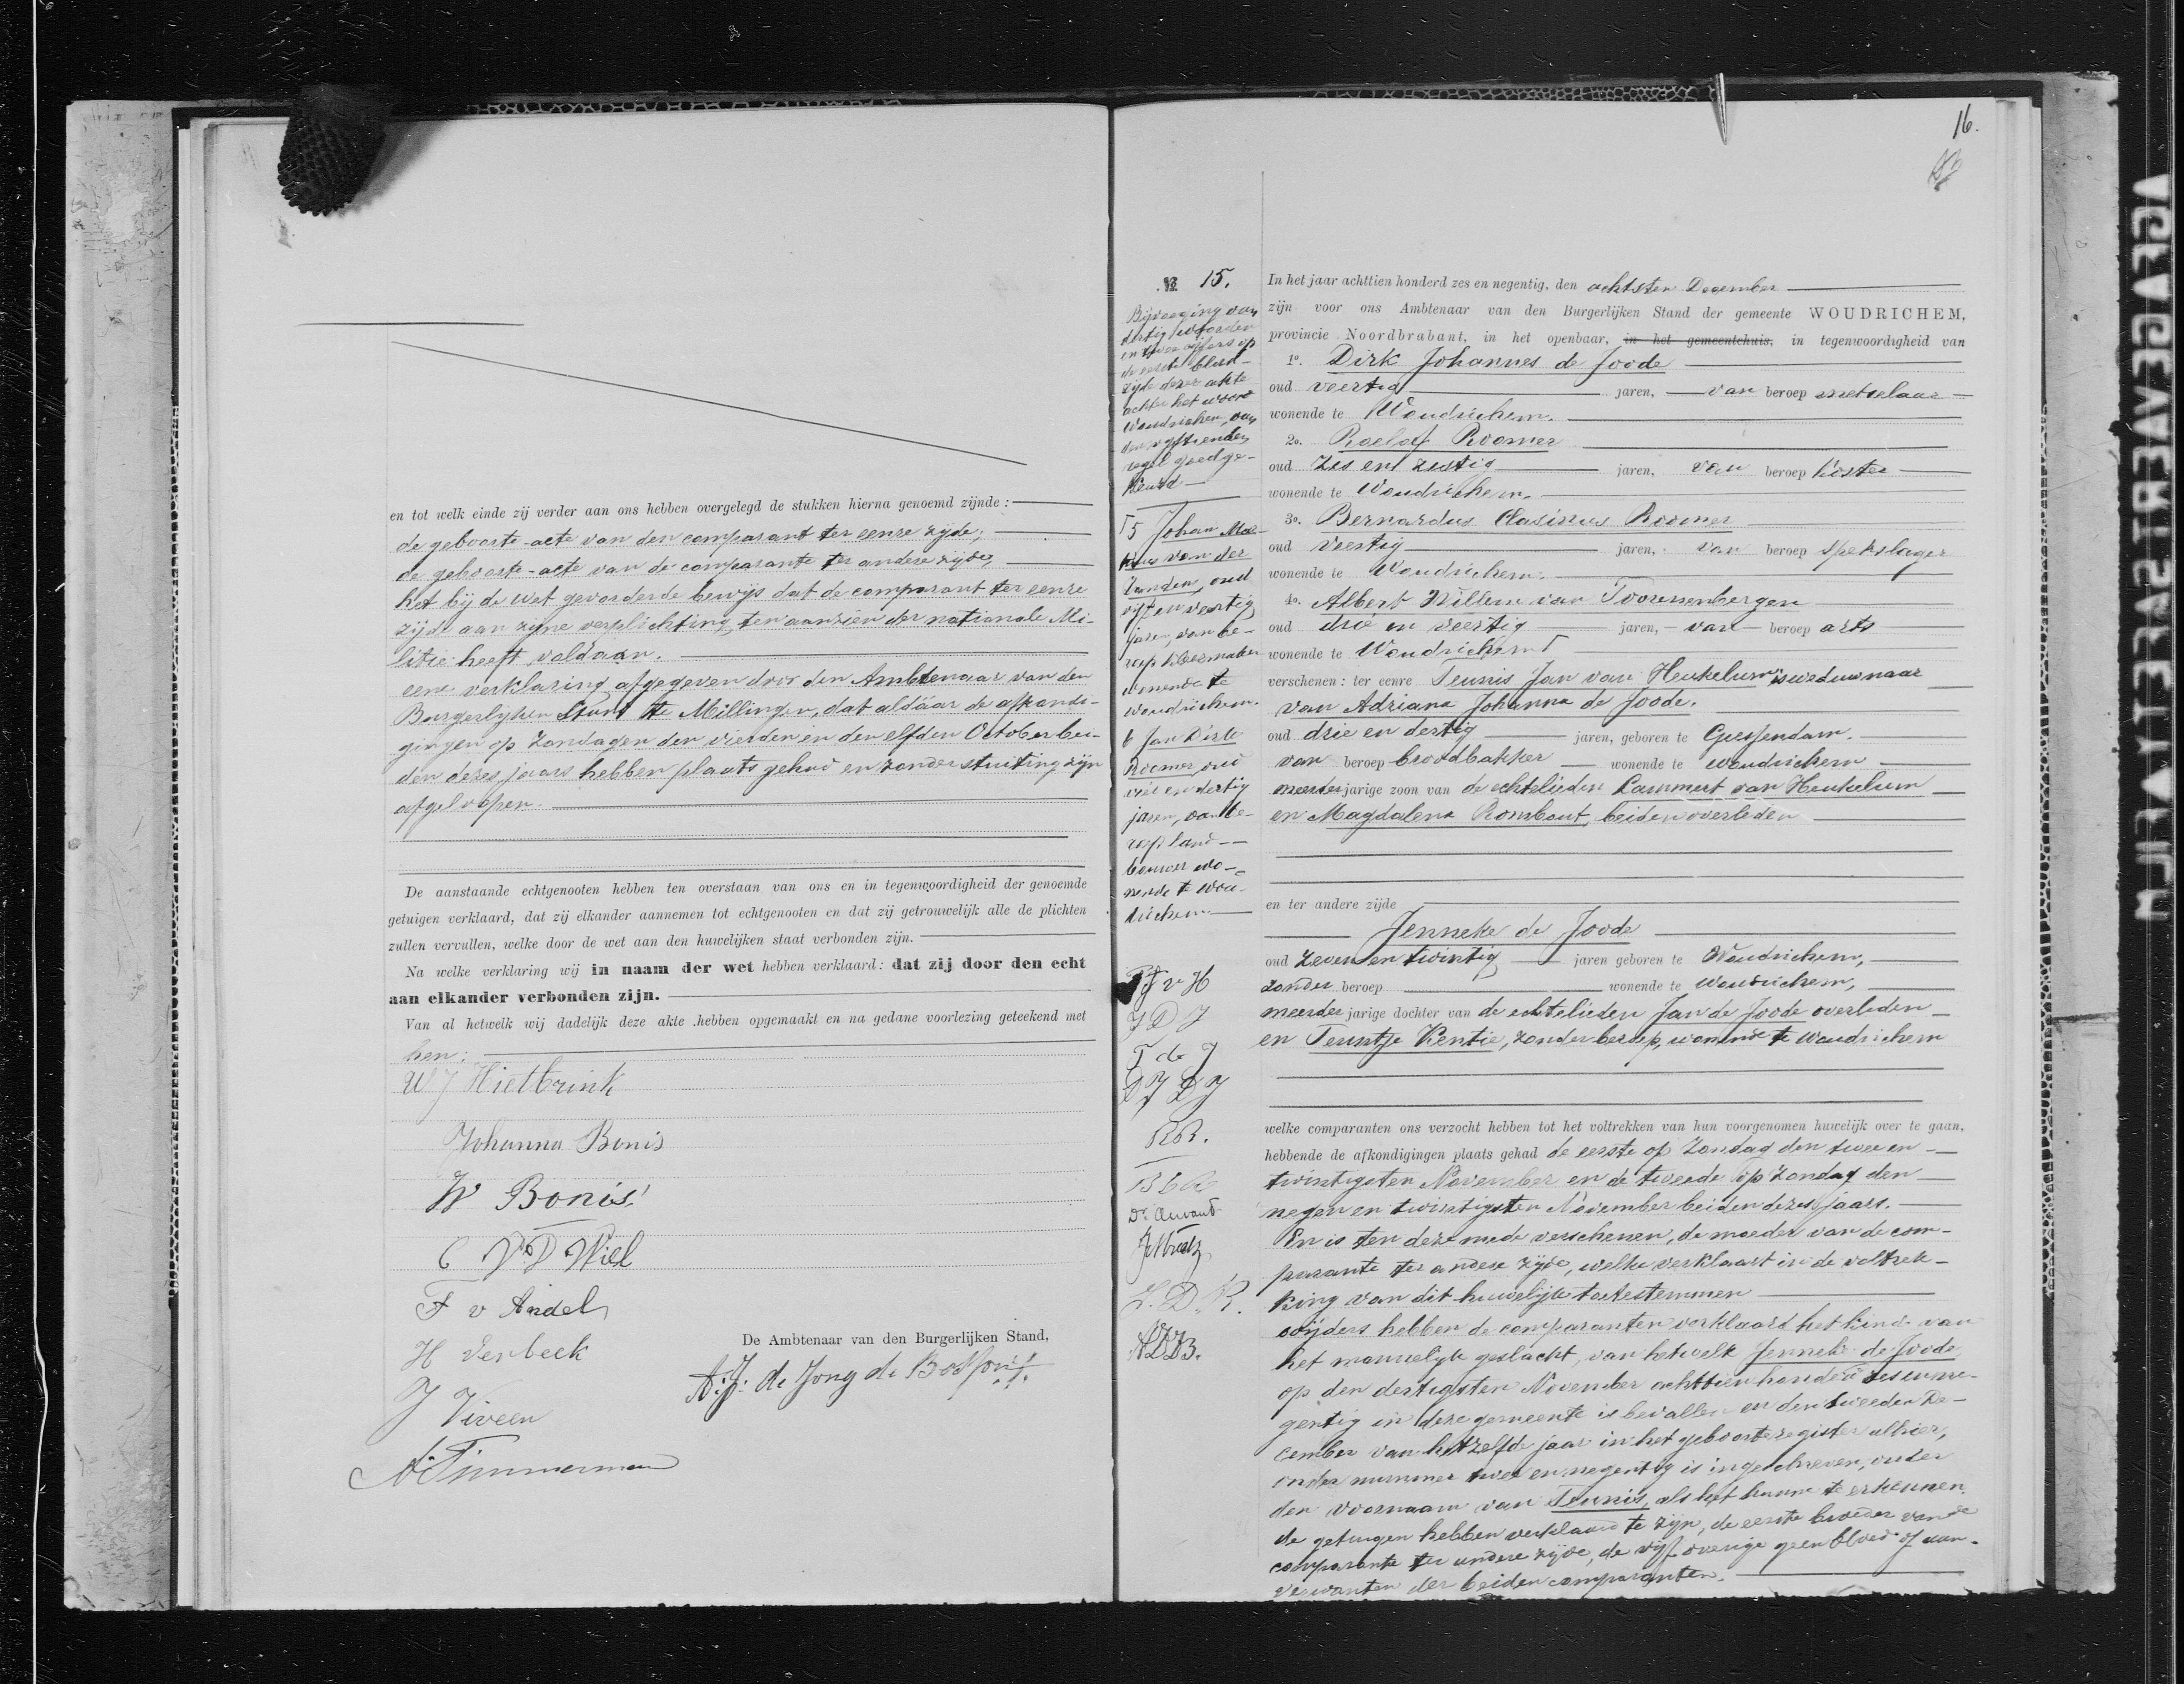 en tot welk einde zij verder aan ons hebben overgelegd de stukken hierna genoemd zijnde:
de geboorte-acte van den comparant ter eenre zijde;
de geboorte-acte van de comparante ter andere zijde,
het bij de wet gevorderde bewijs dat de comparant ter eenre
zijde aan zijne verplichting ten aanzien der nationale Mi-
litie heeft voldaan.
eene verklaring afgegeven door den Ambtenaar van den
Burgerlijken Stand te Millingen, dat aldaar de afkondi-
gingen op Zondagen den vierden en den elfden October bei-
den dezes jaars hebben plaats gehad en zonder stuiting zijn
afgeloopen.
De aanstaande echtgenooten hebben ten overstaan van ons en in tegenwoordigheid der genoemde
getuigen verklaard, dat zij elkander aannemen tot echtgenooten en dat zij getrouwelijk alle de plichten
zullen vervullen, welke door de wet aan den huwelijken staat verbonden zijn.
Na welke verklaring wij in naam der wet hebben verklaard: dat zij door den echt
aan elkander verbonden zijn.
Van al hetwelk wij dadelijk deze akte hebben opgemaakt en na gedane voorlezing geteekend met
hen;
WJ Hietbrink
Johanna Bonis
W Bonis
C VD Wiel
F v Andel
H Verbeek
J Viveen
A Timmerman
De Ambtenaar van den Burgerlijken Stand,
A.J. de Jong de
16.
№ 15.
Bijvoeging van
dertig woorden
en twee cijfers op
de eerste blad-
zijde dezer akte
achter het woord
Woudrichem, van
den vijftienden
regel goedge-
keurd
5 Johan Mar-
kus van der
Zanden, oud
vijf en veertig
jaren, van be-
roep kleermaker
wonende te
Woudrichem.
6 Jan Dirk
Roomer, oud
vier en dertig
jaren, van be-
roep land-
bouwer wo-
nende te Wou-
drichem
TJ v H
J D J
T de J
DJ D J
RR.
B C R
J. D. R.
In het jaar achttien honderd zes en negentig, den achtsten December
zijn voor ons Ambtenaar van den Burgerlijken Stand der gemeente WOUDRICHEM,
provincie Noordbrabant, in het openbaar, in het gemeentehuis, in tegenwoordigheid van
1o. Dirk Johannes de Joode
oud veertig jaren, van beroep metselaar
wonende te Woudrichem.
2o. Roelof Roomer
oud zes en zestig jaren, van beroep koster
wonende te Woudrichem.
3o. Bernardus Clasinus Roomer
oud veertig jaren, van beroep spekslager
wonende te Woudrichem.
4o. Albert Willem van Toorenenbergen
oud drie en veertig jaren, van beroep arts
wonende te Woudrichem
verschenen: ter eenre Teunis Jan van Heukelum, weduwnaar
van Adriana Johanna de Joode.
oud drie en dertig jaren, geboren te Giessendam.
van beroep broodbakker wonende te Woudrichem
meerderjarige zoon van de echtelieden Lammert van Heukelum
en Magdalena Rombout, beiden overleden
en ter andere zijde
Jenneke de Joode
oud zeven en twintig jaren geboren te Woudrichem,
zonder beroep wonende te Woudrichem,
meerderjarige dochter van de echtelieden Jan de Joode overleden
en Teuntje Kentie, zonder beroep, wonende te Woudrichem
welke comparanten ons verzocht hebben tot het voltrekken van hun voorgenomen huwelijk over te gaan,
hebbende de afkondigingen plaats gehad de eerste op Zondag den twee en
twintigsten November en de tweede op Zondag den
negen en twintigsten November beiden dezes jaars.
En is ten deze mede verschenen, de moeder van de com-
parante ter andere zijde, welke verklaart in de voltrek-
king van dit huwelijk toetestemmen
wijders hebben de comparanten verklaard het kind van
het mannelijk geslacht, van hetwelk Jenneke de Joode
op den dertigsten November achttien honderd zes en ne-
gentig in deze gemeente is bevallen en den tweeden De-
cember van hetzelfde jaar in het geboorteregister alhier,
onder nummer twee en negentig is ingeschreven, onder
den voornaam van Teunis, als het hunne te erkennen
de getuigen hebben verklaard te zijn, de eerste broeder van de
comparante ter andere zijde, de vijf overige geen bloed of aan-
verwanten der beiden comparanten.